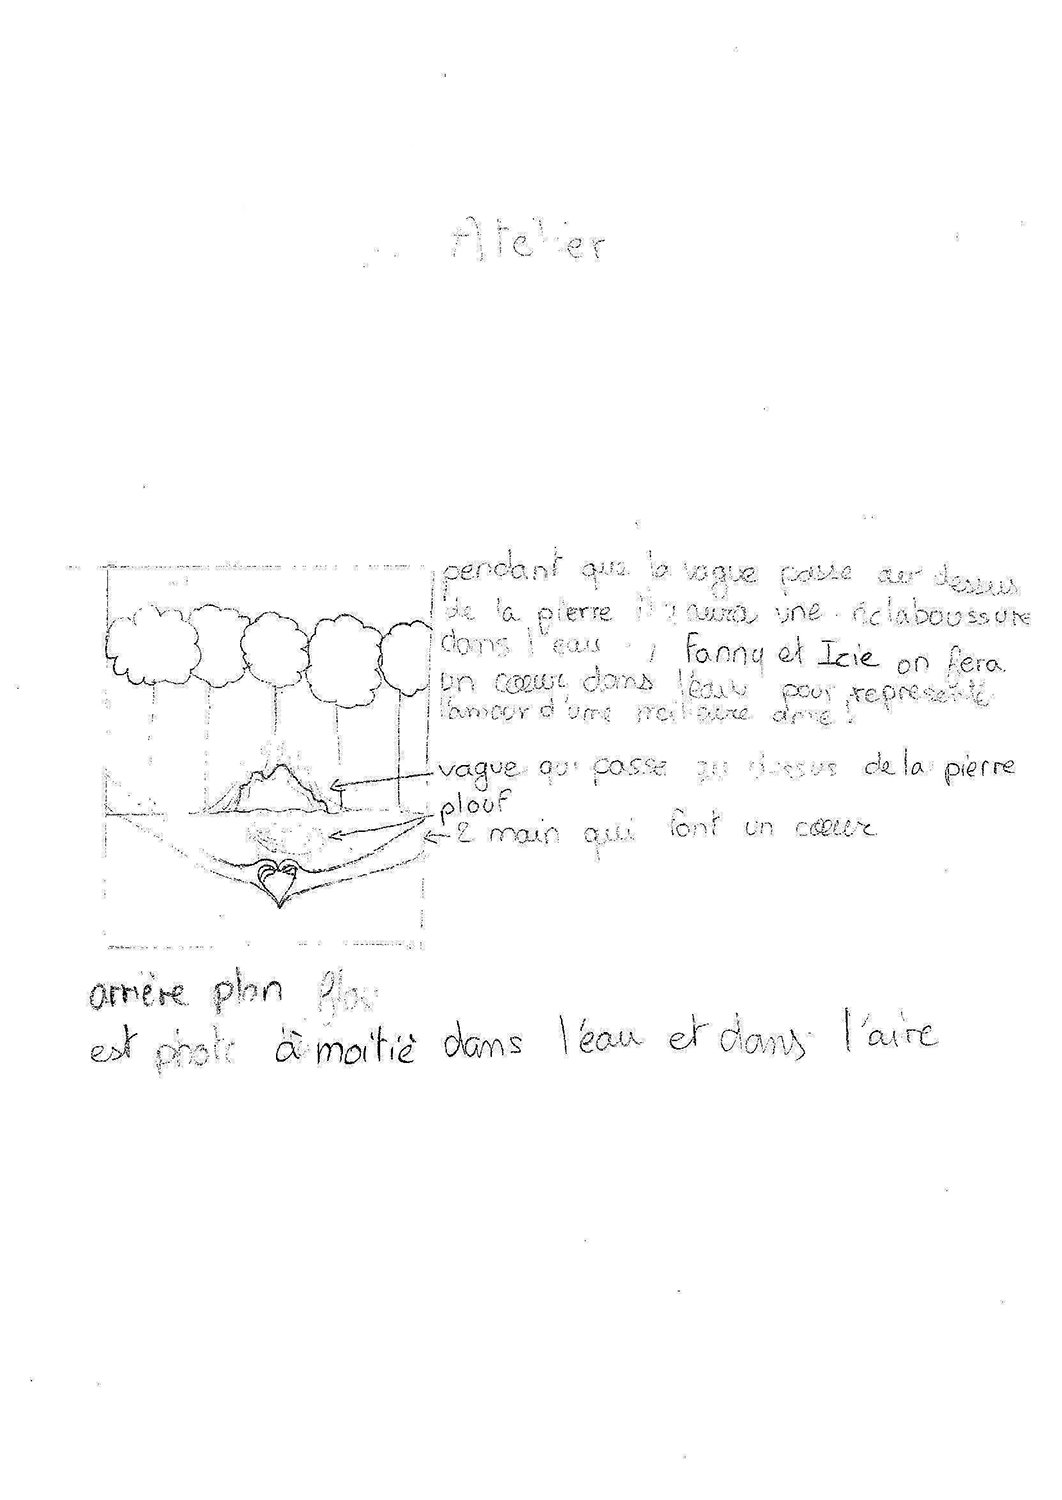 Atelier
pendant que la vague passe au dessus
de la pierre il y aura une éclaboussure
dans l'eau, Fanny et Izie on fera
un cœur dans l'eau pour representé
l'amour d'une meilleure amie !
vague qui passe au dessus de la pierre
plouf
2 main qui font un cœur
arrière plan flou
est photo à moitié dans l'eau et dans l'aire